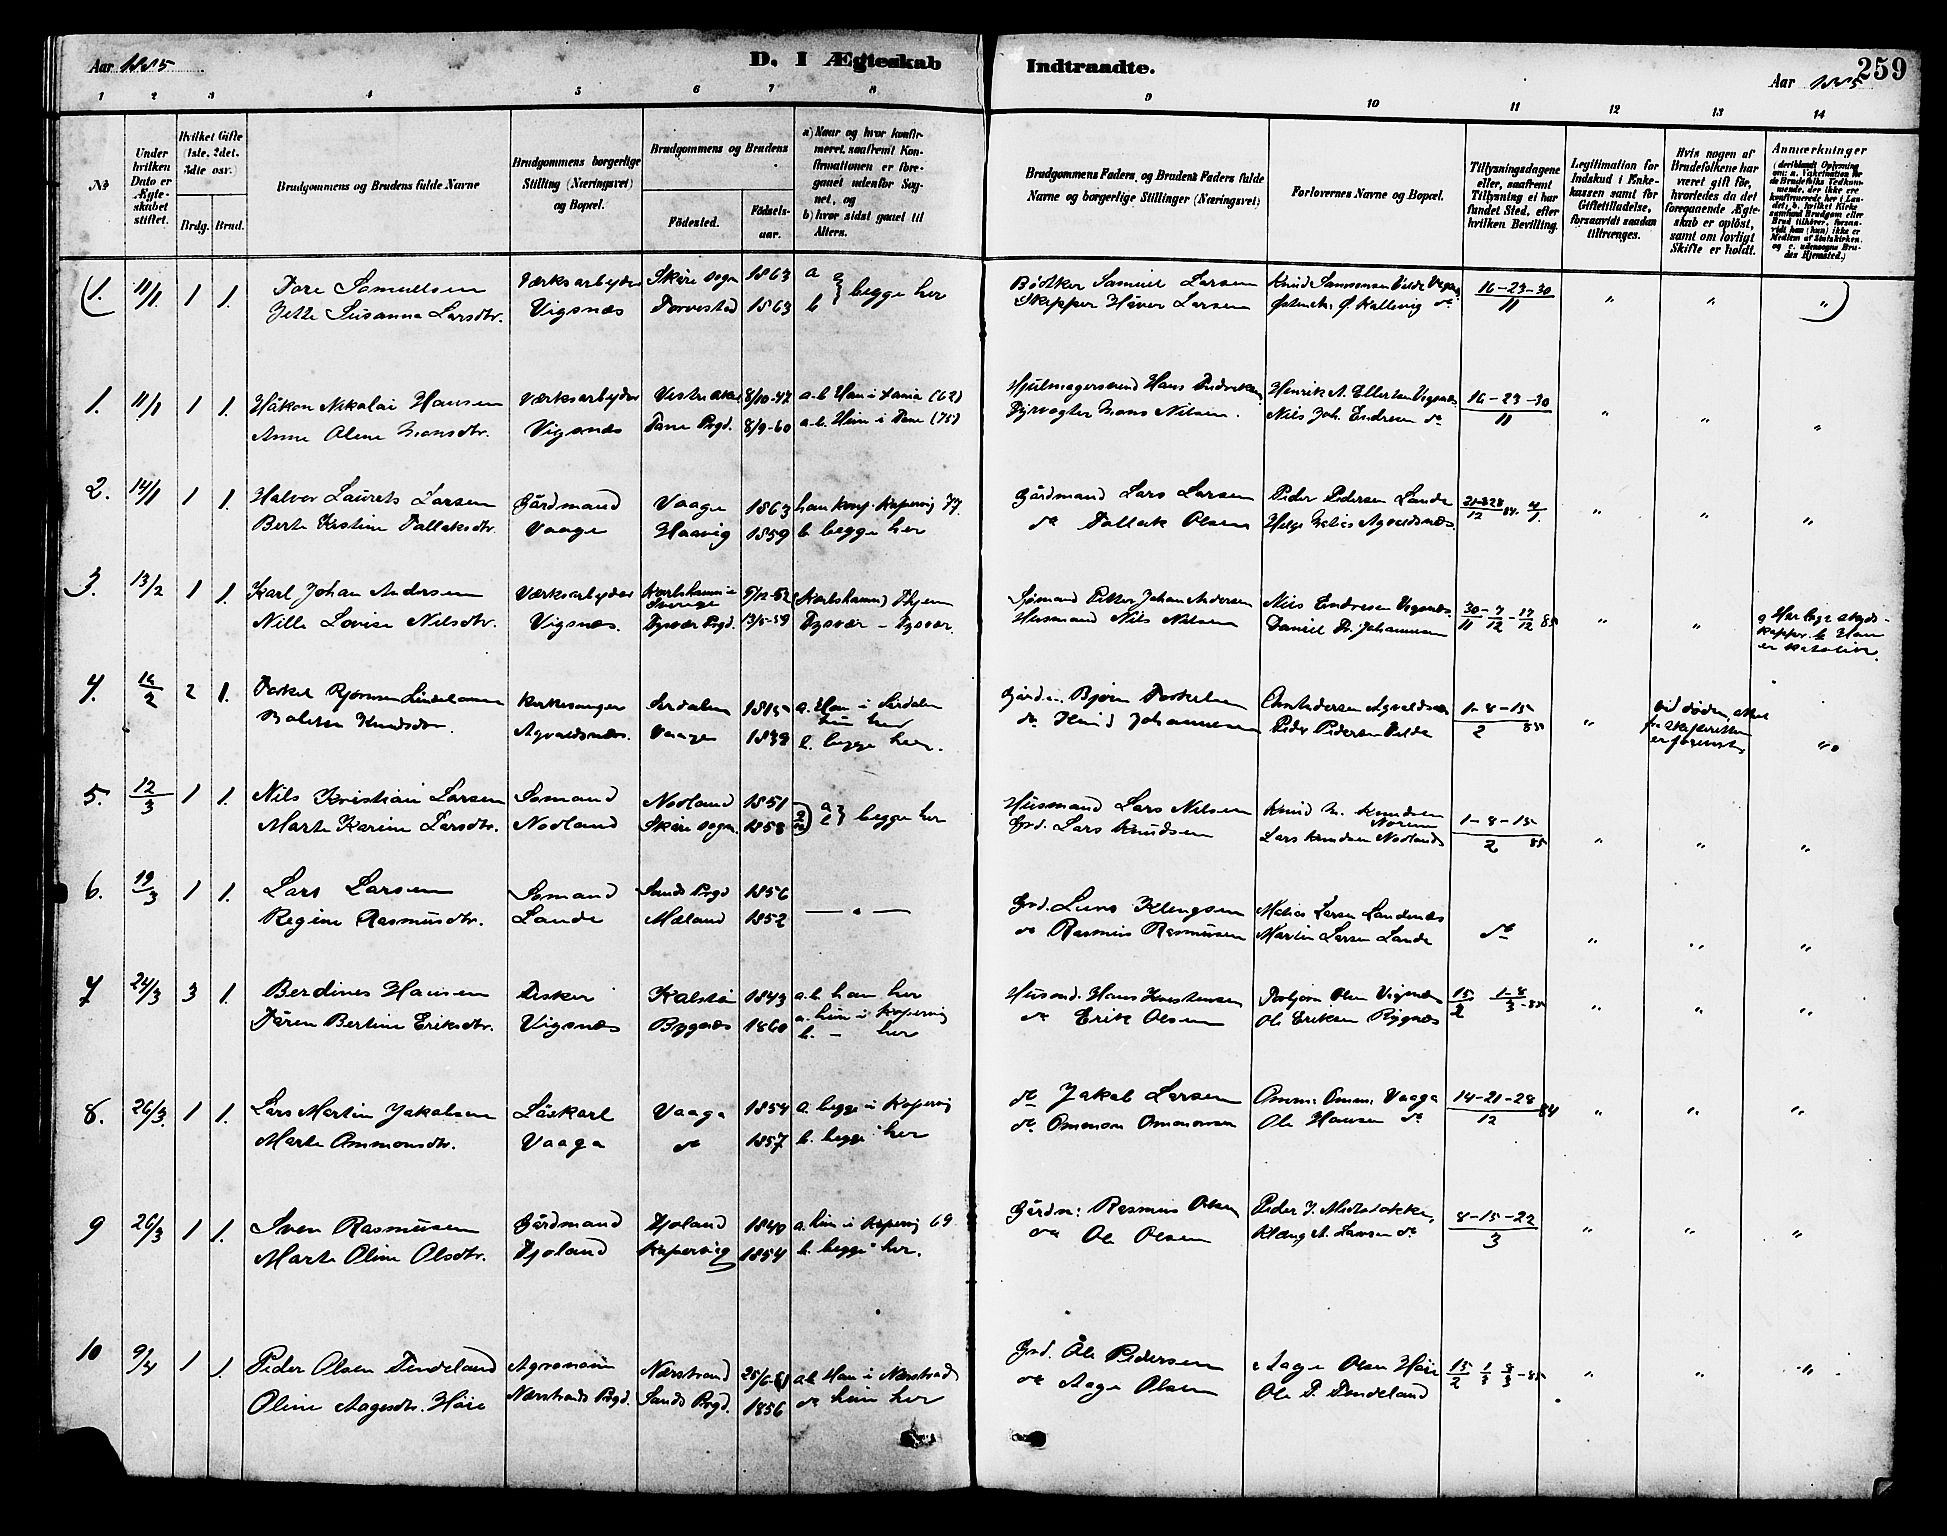 Aar 1885
D. I Ægteskab
Indtraadte.
Aar 1885
259
1 2 3 4 5 6 7 8 9 10 11 12 13 14
No
Under hvilken Dato er Ægteskabet stiftet.
Hvilket Gifte (1ste, 2det, 3die osv.)
Brdg. Brud.
Brudgommens og Brudens fulde Navne
Brudgommens borgerlige Stilling (Næringsvei) og Bopæl.
Brudgommens og Brudens
Fødested.
Fødselsaar.
a) Naar og hvor konfirmeret, saafremt Konfirmationen er foregaaet udenfor Sognet, og
b) hvor sidst gaaet til Alters.
Brudgommens Faders, og Brudens Faders fulde Navne og borgerlige Stillinger (Næringsvei)
Forlovernes Navne og Bopæl.
Tillysningsdagene eller, saafremt Tillysning ei har fundet Sted, efter hvilken Bevilling.
Legitimation for Indskud i Enkekassen samt for Giftetilladelse, forsaavidt saadan tiltrænges.
Hvis nogen af Brudefolkene har været gift før, hvorledes da det foregaaende Ægteskab er opløst, samt om lovligt Skifte er holdt.
Anmærkninger
(1. 11/1 1 1. Tore Samuelsen Værksarbeider Skåre sogn 1863 a } begge her Bödker Samuel Larsen Knud Samsonsen Velde 16-23-30 " " ")
Jette Susanna Larsdtr. Vigsnæs Torvestad 1863 b Skipper Håver Larsen Kallevig do 11
1. 11/1 1 1. Håkon Nikolai Hansen Værksarbeider 8/10-47 a.b Han i (62) Hjulmagersvend Hans Henrik A. Ellertsen Vigsnæs 16-23-30 " " "
Anne Oline Monsdtr. Vigsnæs Tane Prgd. 8/9-60 a.b. Hun i Tane (75) Dyrvogter Mons Nilsen. Nils Joh. Endresen do 11
2. 14/1 1 1. Halvor Laurets Larsen Gårdmand Vaage 1863 han konf. Kopervig 77. Gårdmand Lars Larsen Peder Pedersen Lande 21-28/12 84. 4/1. " " "
Berte Kristine Tallaksdtr. Vaage Haavig 1859 b begge her do Tallak Olsen Helge Agvaldsnæs.
3. 13/2 1 1. Karl Johan Andersen Værksarbeider Karlshamn i Sverige 5/12-52 (Karlshamn) Hjem Sjömand Petter Johan Andersen Nils Endresen Vigsnæs 30/11-7/12-17/12 85 " "
Nille Lovise Nilsdtr. Vigsnæs. Tysvær Prgd. 13/5-59 Tysvær - Tysvær. Husmand Nils Nilsen Daniel Johannesen
4. 16/2 2 1. Torkel Bjørnsen Kirkesanger Sirdalen 1815 a. Han i Sirdalen Gårdm. Bjørn Torkelsen Agvaldsnæs 1-8-15 " ved döden, "
Knudsdtr Agvaldsnæs. Vaage 1849 hun her do Knud Johannesen Peder Pedersen Velde 2 85
b. begge her.
5. 12/3 1 1. Nils Kristian Larsen Sömand Nodland 1851 a } begge her Husmand Lars Nilsen Knud M. Knudsen 1-8-15 " " "
Marte Karine Larsdtr. Nodland Skåre sogn. 1858 b Grd. Lars Knudsen Lars Knudsen Nodland 2 85
6. 19/3 1 1. Lars Larsen Sömand Sands Prgd 1856 — " — Grd. Lars Klengsen Matias Larsen Landenæs do " " "
Regine Rasmusdtr. Lande Mæland 1852 do Rasmus Rasmusen Martin Larsen Lande
7 24/3 3 1. Berdines Hansen Fisker Kalstö 1843 a.b. han her Husmd. Hans Torbjørn Olsen Vigsnæs 15/2 1-8/3-85 " " "
Tåren Bertine Eriksdtr. Vigsnæs Bygnæs 1860 a. hun i Kopervig do Erik Olsen Ole Eriksen Bygnæs
b. - her
8. 26/3 1 1. Lars Martin Jakobsen Löskarl Vaaga 1854 a. begge i Kopervig do Jakob Larsen Omm. Vaaga 14-21-28 84 " " "
Marte Ommonsdtr. Vaaga do 1857 b. begge her do Ommon Ommonsen Ole Hansen do 12
9 26/3 1 1. Sven Rasmusen Gårdmand 1840 a. hun i Kopervig 69. Gårdm: Rasmus Olsen Peder J. 8-15-22 " " "
Marte Oline Olsdtr. Kopervig 1854 b. begge her. do Ole Olsen Klæng A. Larsen do 3
10 9/4 1 1. Peder Olsen Tendeland Agronom Nærstrand 25/6-61 a.b Han i Nærstrand Grd. Ole Pedersen Aage Olsen Höie 15/2 1/3 8/3-85 " " "
Oline Aagesdtr. Höie Nærstrands Prgd. Sands Prgd. 1856 do hun her do Aage Olsen Ole P. Tendeland